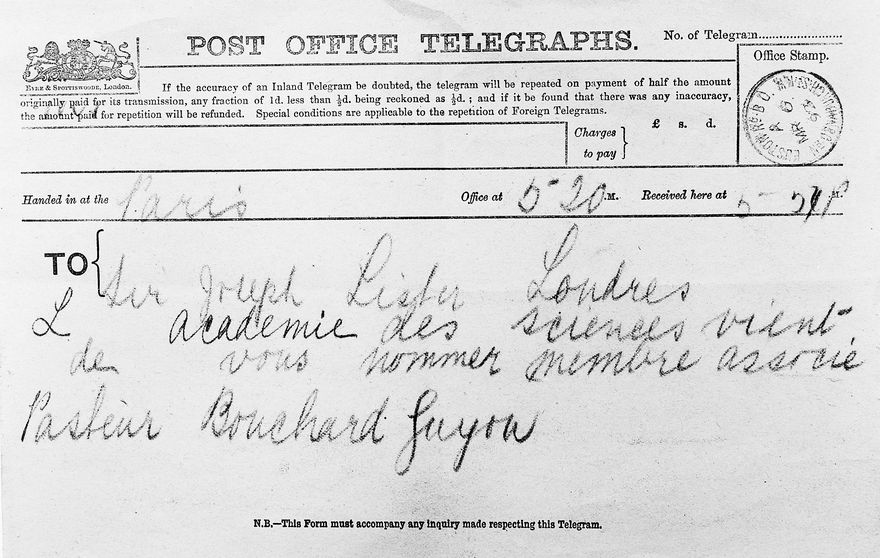 POST OFFICE TELEGRAPHS.
No. of Telegram
EYRE & SPOTTISWOODE, London.
Office Stamp.
If the accuracy of an Inland Telegram be doubted, the telegram will be repeated on payment of half the amount
originally paid for its transmission, any fraction of 1d. less than ½d. being reckoned as ½d.; and if it be found that there was any inaccuracy,
the amount paid for repetition will be refunded. Special conditions are applicable to the repetition of Foreign Telegrams.
Charges
to pay
£ s. d.
Handed in at the Paris Office at 5-20 .M. Received here at
TO
Sir Joseph Lister Londres
L academie des sciences vient
de vous nommer membre associé
Pasteur Bouchard Guyon
N.B.—This Form must accompany any inquiry made respecting this Telegram.